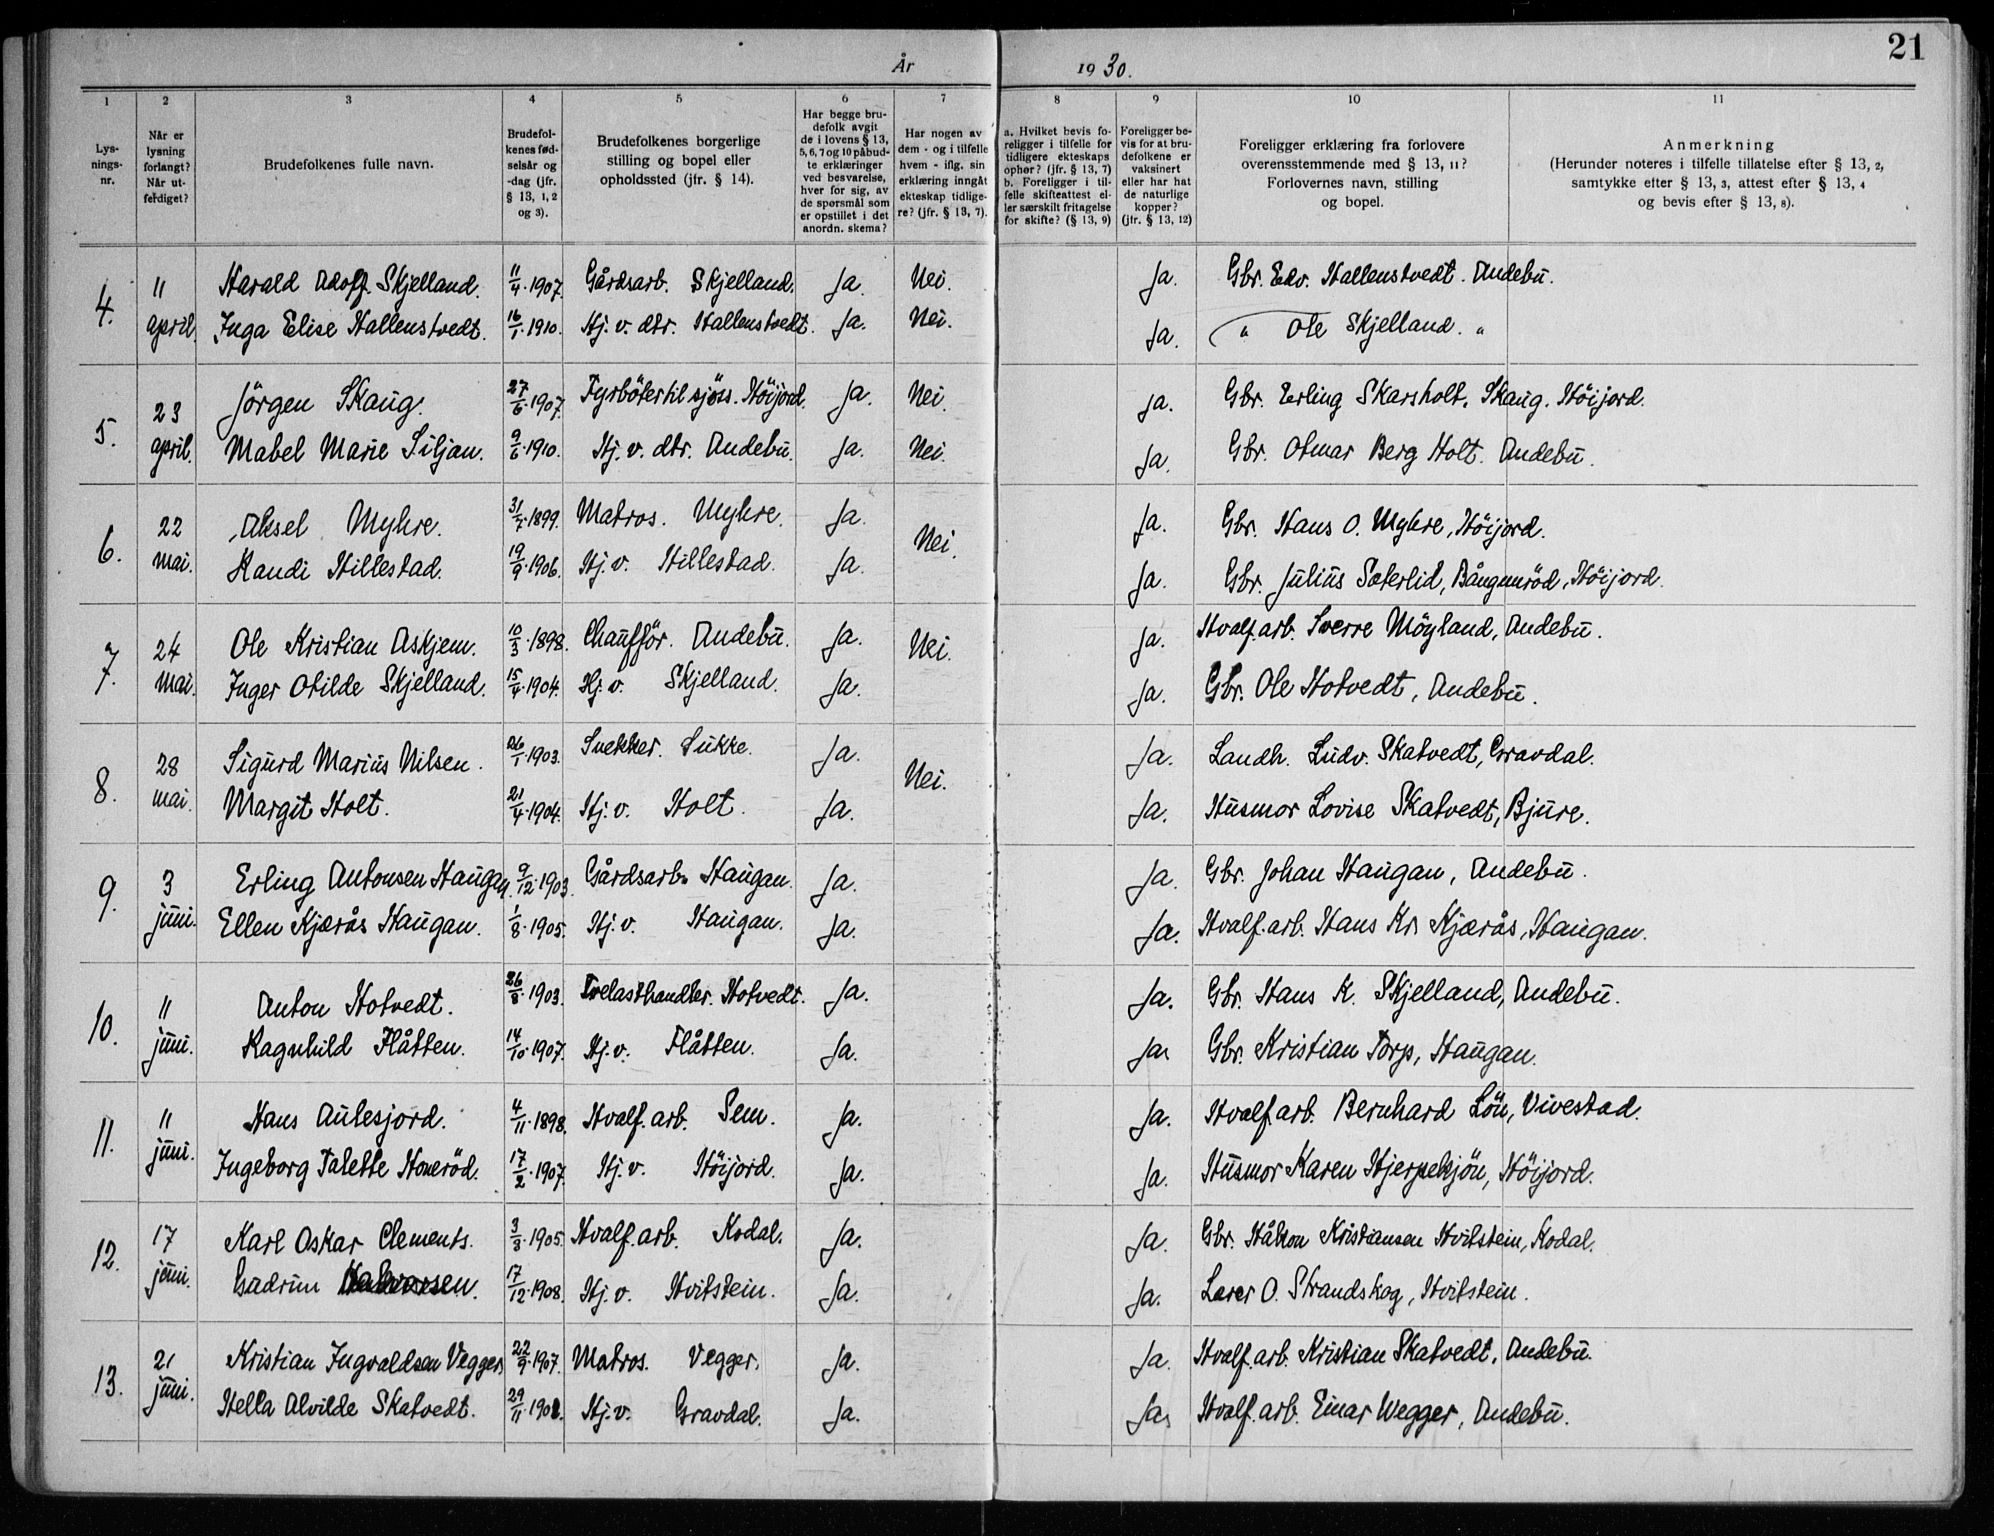 21
År 1930.
1 2 3 4 5 6 7 8 9 10 11
Lys-
nings-
nr.
Når er
lysning
forlangt?
Når ut-
ferdiget?
Brudefolkenes fulle navn.
Brudefol-
kenes fød-
selsår og
-dag (jfr.
§ 13, 1, 2
og 3).
Brudefolkenes borgerlige
stilling og bopel eller
opholdssted (jfr. § 14).
Har begge bru-
defolk avgit
de i lovens § 13,
5, 6, 7 og 10 påbud-
te erklæringer
ved besvarelse,
hver for sig, av
de spørsmål som
er opstillet i det
anordn. skema?
Har nogen av
dem - og i tilfelle
hvem - iflg. sin
erklæring inngåt
ekteskap tidlige-
re? (jfr. § 13, 7).
a. Hvilket bevis fo-
religger i tilfelle for
tidligere ekteskaps
ophør? (jfr. § 13, 7)
b. Foreligger i til-
felle skifteattest el-
ler særskilt fritagelse
for skifte? (§ 13, 9)
Foreligger be-
vis for at bru-
defolkene er
vaksinert
eller har hat
de naturlige
kopper?
(jfr. § 13, 12)
Foreligger erklæring fra forlovere
overensstemmende med § 13, 11?
Forlovernes navn, stilling
og bopel.
Anmerkning
(Herunder noteres i tilfelle tillatelse efter § 13, 2,
samtykke efter § 13, 3, attest efter § 13, 4
og bevis efter § 13, 8).
4. 11 april. Harald Adolf Skjelland. 11/4.1907. Gårdsarb. Skjelland. Ja. Nei. Ja. Gbr. Edv. Hallenstvedt. Andebu.
Inga Elise Hallenstvedt. 16/1.1910. Hj. v. dtr. Hallenstvedt. Ja. Nei. Ja. " Ole Skjelland. "
5. 23 april. Jörgen Skaug. 27/6.1907. Fyrböter til sjöss. Höijord. Ja. Nei. Ja. Gbr. Erling Skarsholt. Skaug. Höijord.
Mabel Marie Siljan. 9/6.1910. Hj. v. dtr. Andebu. Ja. Nei. Ja. Gbr. Otmar Berg Holt. Andebu.
6. 22 mai. Aksel Myhre. 31/7.1899. Matros. Myhre. Ja. Nei. Ja. Gbr. Hans O. Myhre, Höijord.
Randi Hillestad. 19/9.1906. Hj. v. Hillestad. Ja. Ja. Gbr. Julius Sæterlid, Bångunröd, Höijord.
7. 24 mai. Ole Kristian Askjem. 10/3.1898. Chaufför. Andebu. Ja. Nei. Ja. Hvalf.arb. Sverre Möyland, Andebu.
Inger Otilde Skjelland. 15/4.1904. Hj. v. Skjelland. Ja. Ja. Gbr. Ole Hotvedt, Andebu.
8. 28 mai. Sigurd Marius Nilsen. 26/1.1903. Snekker. Sukke. Ja. Nei. Ja. Landh. Ludv. Skatvedt, Gravdal.
Margit Holt. 21/4.1904. Hj. v. Holt. Ja. Ja. Husmor Lovise Skatvedt, Bjure.
9. 3 juni. Erling Antonsen Haugan. 9/12.1903. Gårdsarb. Haugan. Ja. Ja. Gbr. Johan Haugan, Andebu.
Ellen Kjærås Haugan. 1/8.1905. Hj. v. Haugan. Ja. Ja. Hvalf.arb. Hans Kr. Kjærås, Haugan.
10. 11 juni. Anton Hotvedt. 26/8.1903. Trelasthandler. Hotvedt. Ja. Ja. Gbr. Hans K. Skjelland, Andebu.
Ragnhild Flåtten. 14/10.1907. Hj. v. Flåtten. Ja. Ja. Gbr. Kristian Torp, Haugan.
11. 11 juni. Hans Aulesjord. 4/11.1898. Hvalf.arb. Sem. Ja. Ja. Hvalf.arb. Bernhard Löu, Vivestad.
Ingeborg Talette Honeröd. 17/2.1907. Hj. v. Höijord. Ja. Ja. Husmor Karen Hjerpekjön, Höijord.
12. 17 juni. Karl Oskar Clements. 3/3.1905. Hvalf.arb. Kodal. Ja. Ja. Gbr. Håkon Kristiansen Hvitstein, Kodal.
Gudrun Halvorsen. 17/12.1908. Hj. v. Hvitstein. Ja. Ja. Lærer O. Strandskog, Hvitstein.
13. 21 juni. Kristian Ingvaldsen Vegger. 22/9.1907. Matros. Vegger. Ja. Ja. Hvalf.arb. Kristian Skatvedt, Andebu.
Hella Alvilde Skatvedt. 29/11.1908. Hj. v. Gravdal. Ja. Ja. Hvalf.arb. Einar Wegger, Andebu.